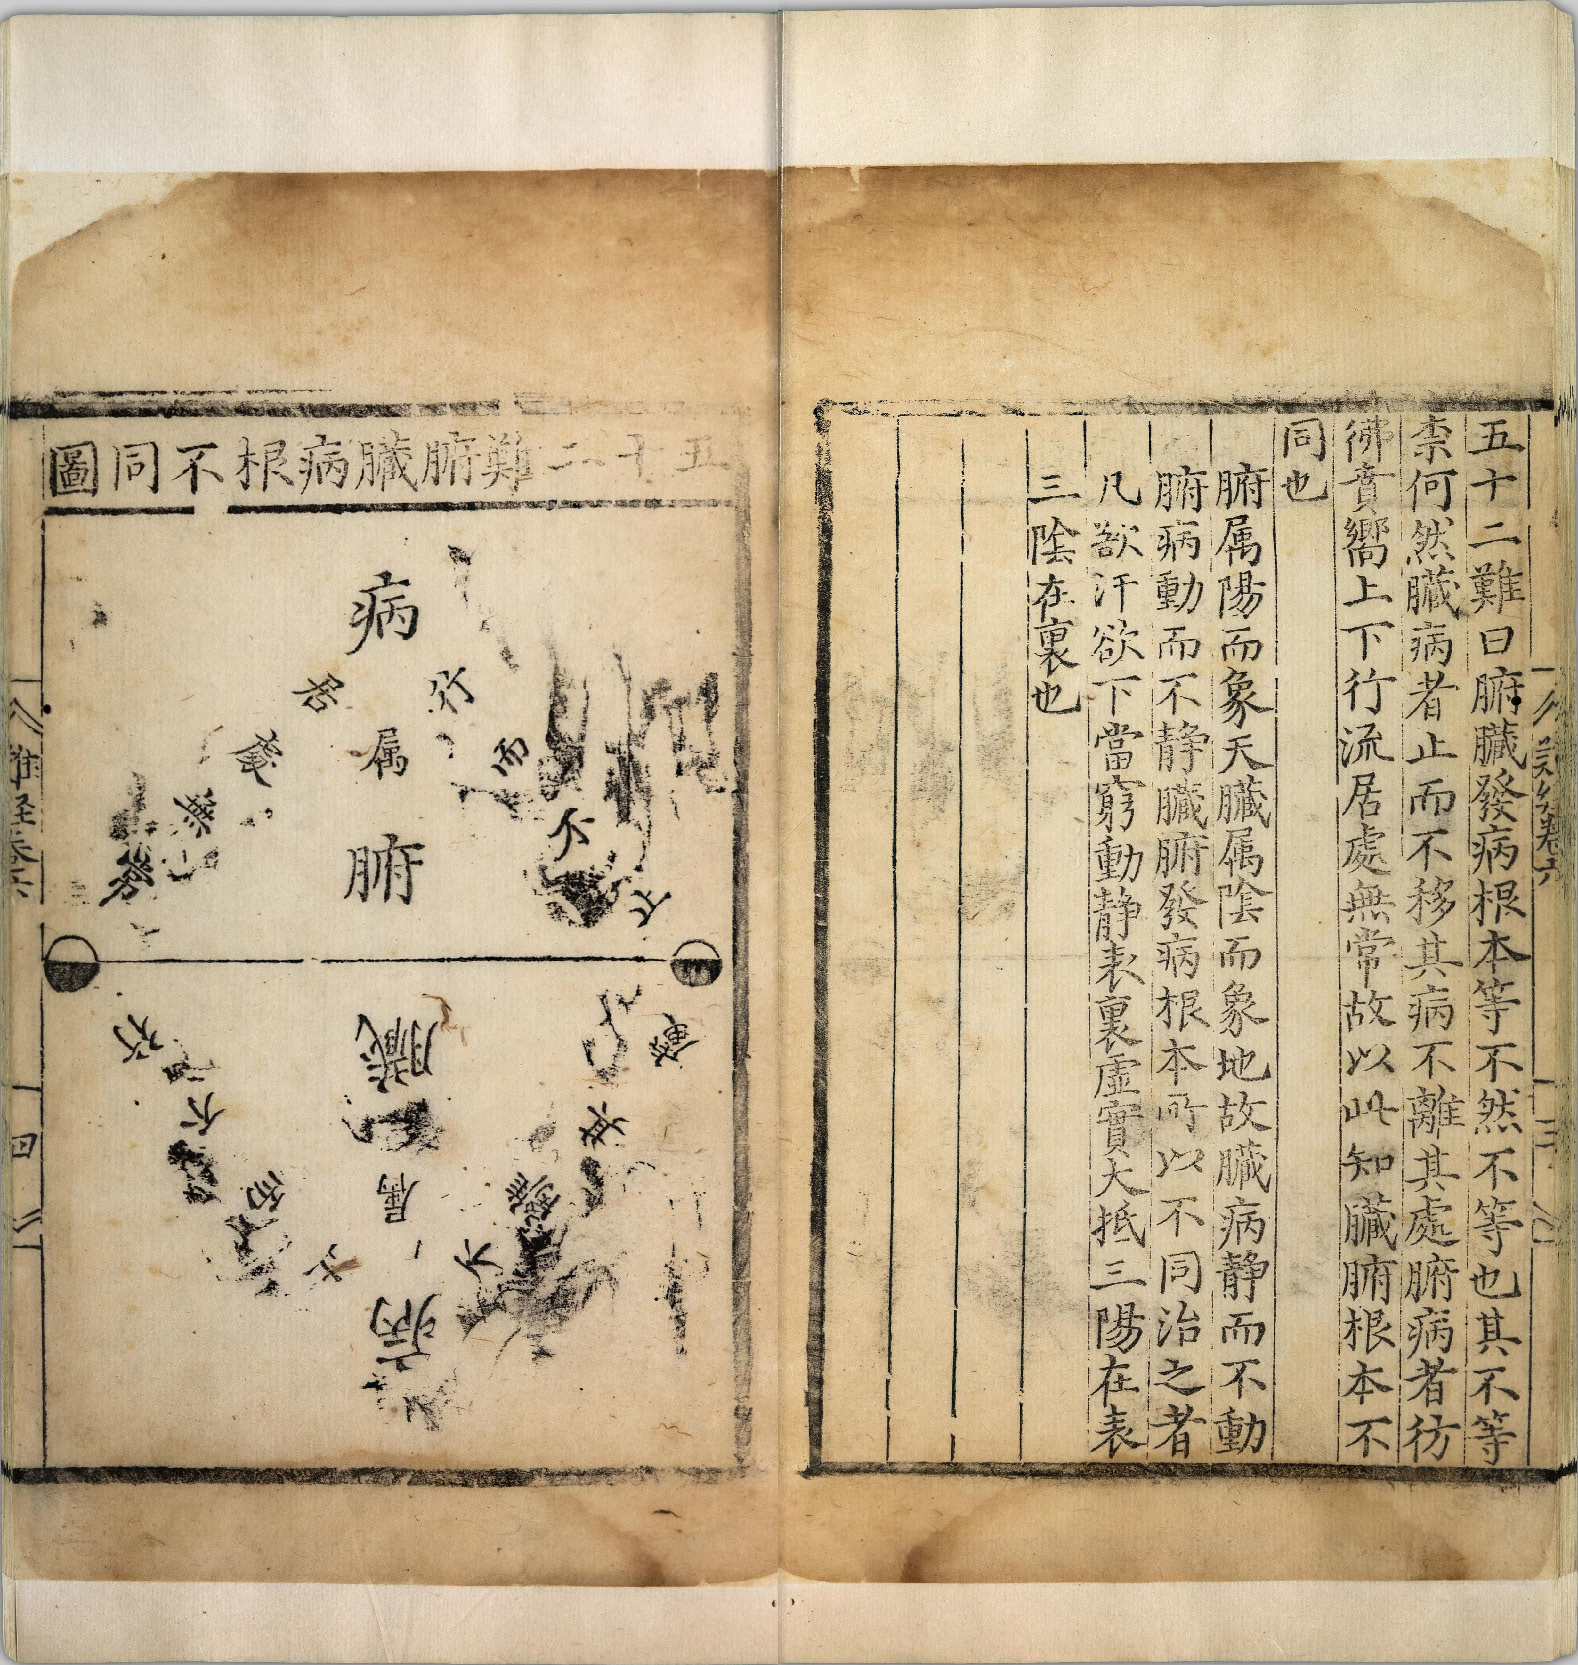 五十二難曰腑臟發病根本等不然不等也其不等
柰何然臟病者止而不移其病不離其處腑病者彷
彿賁嚮上下行流居處無常故以此知臟腑根本不
同也
腑属陽而象天臟属陰而象地故臟病静而不動
腑病動而不静臟腑發病根本所以不同治之者
凡欲汗欲下當窮動静表裏虚實大抵三陽在表
三陰在裏也
三
五十二難腑臟病根不同圖
病
属
腑
行
而
不
止
居
處
無
常
臟
属
病
止
而
不
行
其
病
不
離
其
處
難经卷六
四